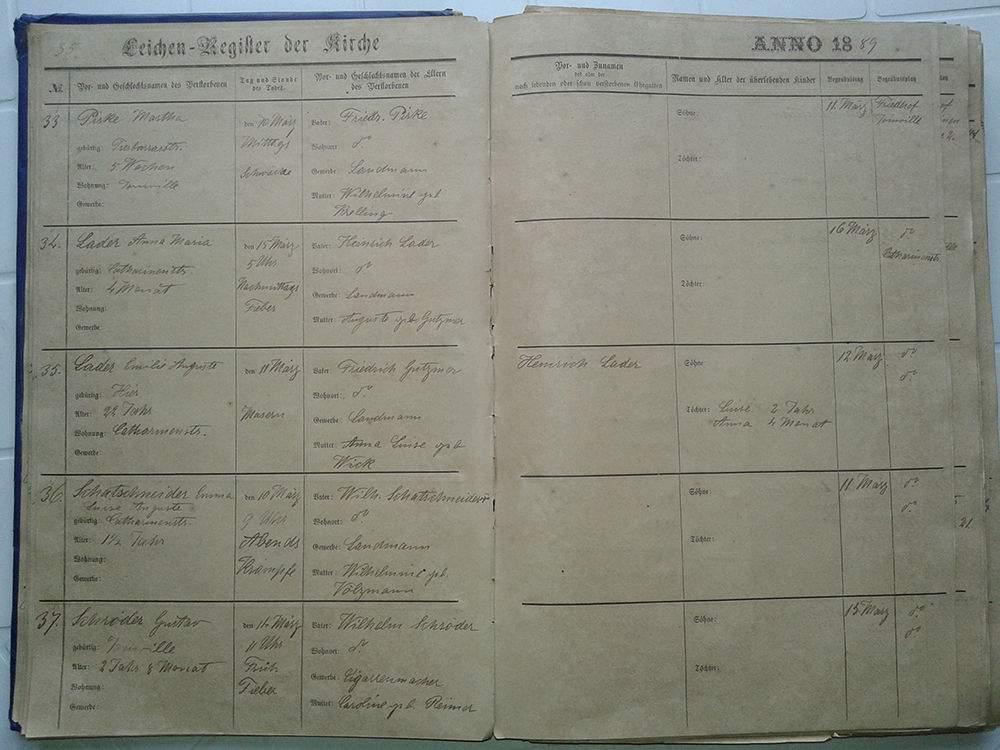 35
Leichen-Register der Kirche
ANNO 1889
№
Vor- und Geschlechtsnamen des Verstorbenen
Tag und Stunde
des Todes.
Vor- und Geschlechtsnamen der Eltern
des Verstorbenen
Vor- und Zunamen
des oder der
noch lebenden oder schon verstorbenen Ehegatten
Namen und Alter der überlebenden Kinder
Begräbnißtag
Begräbnißplatz
33
Pirke Martha
gebürtig:
Alter: 5 Wochen
Wohnung: Joinville
Gewerbe:
den 10 März
Mittags
Schwäche
Vater: Friedr. Pirke
Wohnort: do
Gewerbe: Landmann
Mutter: Wilhelmine geb
Krelling
Söhne:
Töchter:
11 März
Friedhof
Joinville
34.
Lader Anna Maria
gebürtig: Catharinenstr.
Alter: 4 Monat
Wohnung:
Gewerbe:
den 15 März
5 Uhr
Nachmittags
Fieber
Vater: Heinrich Lader
Wohnort: do
Gewerbe: Landmann
Mutter: Auguste geb Gutzmer
Söhne:
Töchter:
16 März
do
Catharinenstr
35.
Lader Emilie Auguste
gebürtig: Hier
Alter: 22 Jahr
Wohnung: Catharinenstr.
Gewerbe:
den 11 März
Masern
Vater: Friedrich Gutzmer
Wohnort: do
Gewerbe: Landmann
Mutter: Anna Luise geb
Wick
Heinrich Lader
Söhne
Töchter: Luise 2 Jahr
Anna 4 Monat
12 März
do
do
36.
Schatschneider Emma
Luise Auguste
gebürtig: Catharinenstr.
Alter: 1½ Jahr
Wohnung:
Gewerbe:
den 10 März
9 Uhr
Abends
Krämpfe
Vater: Wilh. Schatschneider
Wohnort: do
Gewerbe: Landmann
Mutter: Wilhelmine geb.
Völzmann
Söhne:
Töchter:
11 März
do
do
21.
37.
Schröder Gustav
gebürtig: Joinville
Alter: 2 Jahr 8 Monat
Wohnung:
Gewerbe:
den 14 März
11 Uhr
Früh
Fieber
Vater: Wilhelm Schröder
Wohnort: do
Gewerbe: Cigarrenmacher
Mutter: Caroline geb. Reimer
Söhne:
Töchter:
15 März
do
do